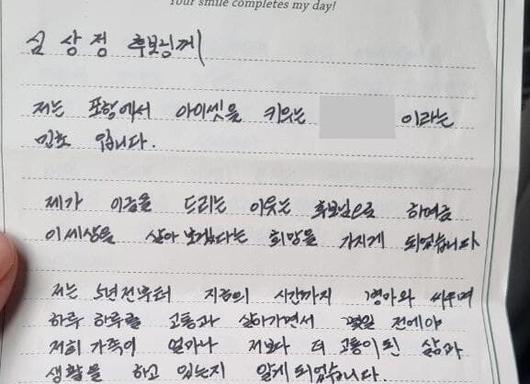 Your smile completes my day!
심상정 후보님께
저는 포항에서 아이셋을 키우는 이라는
민초 입니다.
제가 이글을 드리는 이윳는 후보님으로 하여금
이세상을 살아 보겠다는 희망을 가지게 되었습니다
저는 5년전부터 지금의 시간까지 병마와 싸우며
하루 하루를 고통과 살아가면서 몇일 전에야
저희 가족이 얼마나 저보다 더 고통이 된 삶과
생활을 하고 있는지 알게 되었습니다.